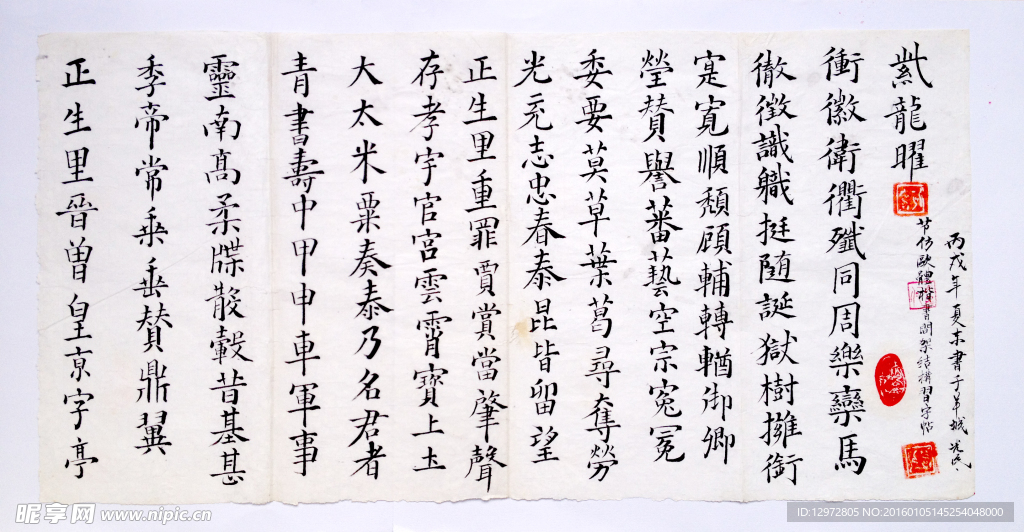 正生里晉曾皇京字亭
季帝常乘垂贊鼎翼
靈南髙柔牒散轂昔基甚
青書壽中甲申車軍事
大太米粟奏泰乃名君者
存孝宇官宫雲霄寶上土
正生里重罪賈賞當肇聲
光充志忠春泰昆皆留望
委要莫草葉葛尋奪勞
瑩贊譽蕃藝空宗冤冕
寔寛順頽顧輔轉輶御卿
徹徵識職挺随誕獄樹擁銜
衝徽衛衢殲同周樂欒馬
紫龍曜
节仿歐體楷書間架结構習字帖
丙戌年夏末書于羊城
昵享网 www.nipic.cn
ID:12972805 NO:20160105145254048000